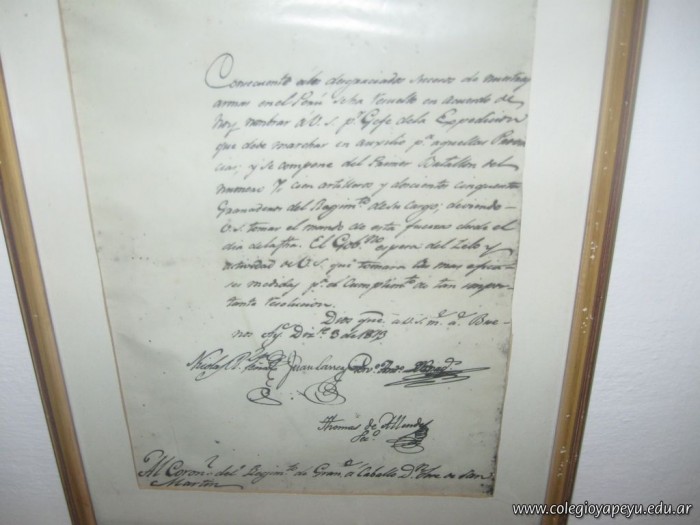 Consecuente á los desgraciados sucesos de nuestras
armas en el Perú se ha resuelto en acuerdo de
hoy nombrar á V.S. pr. Gefe de la Expedicion
que debe marchar en auxilio pa. aquellas Provin
cias; y se compone del Primer Batallon del
numero 7, cien artilleros y doscientos cinquenta
Granaderos del Regimto. de su cargo; deviendo
V.S. tomar el mando de esta fuerza desde el
dia de la fha. El Gobno. espera del Zelo y
actividad de V.S. que tomara las mas efica-
ses medidas pa. el Cumplimto. de tan impor-
tante resolucion.
Dios gue. á V.S. ms. as. Bue-
nos Ays. Dizre. 3 de 1813.
Nicolas R. Peña Juan Larrea
Thomas de Allende
Seco.
Al Coronl. del Regimto. de Grans. á Caballo Dn. Jose de San
Martin
www.colegioyapeyu.edu.ar